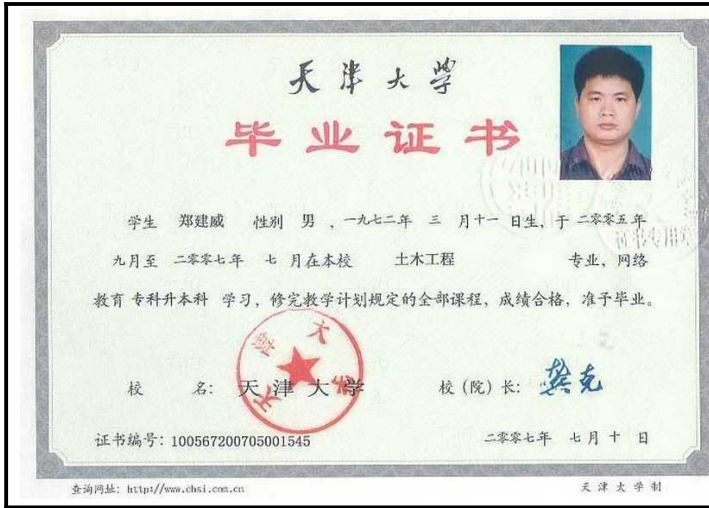 天津大学
毕业证书
学生 郑建威 性别 男 ，一九七二年 三 月十一 日生，于 二零零五年
九月至 二零零七年 七 月在本校 土木工程 专业，网络
教育 专科升本科 学习，修完教学计划规定的全部课程，成绩合格，准予毕业。
天津大学
校 名：天津大学 校（院）长：龚克
证书编号：100567200705001545 二零零七年 七月十 日
查询网址：http://www.chsi.com.cn 天津大学制